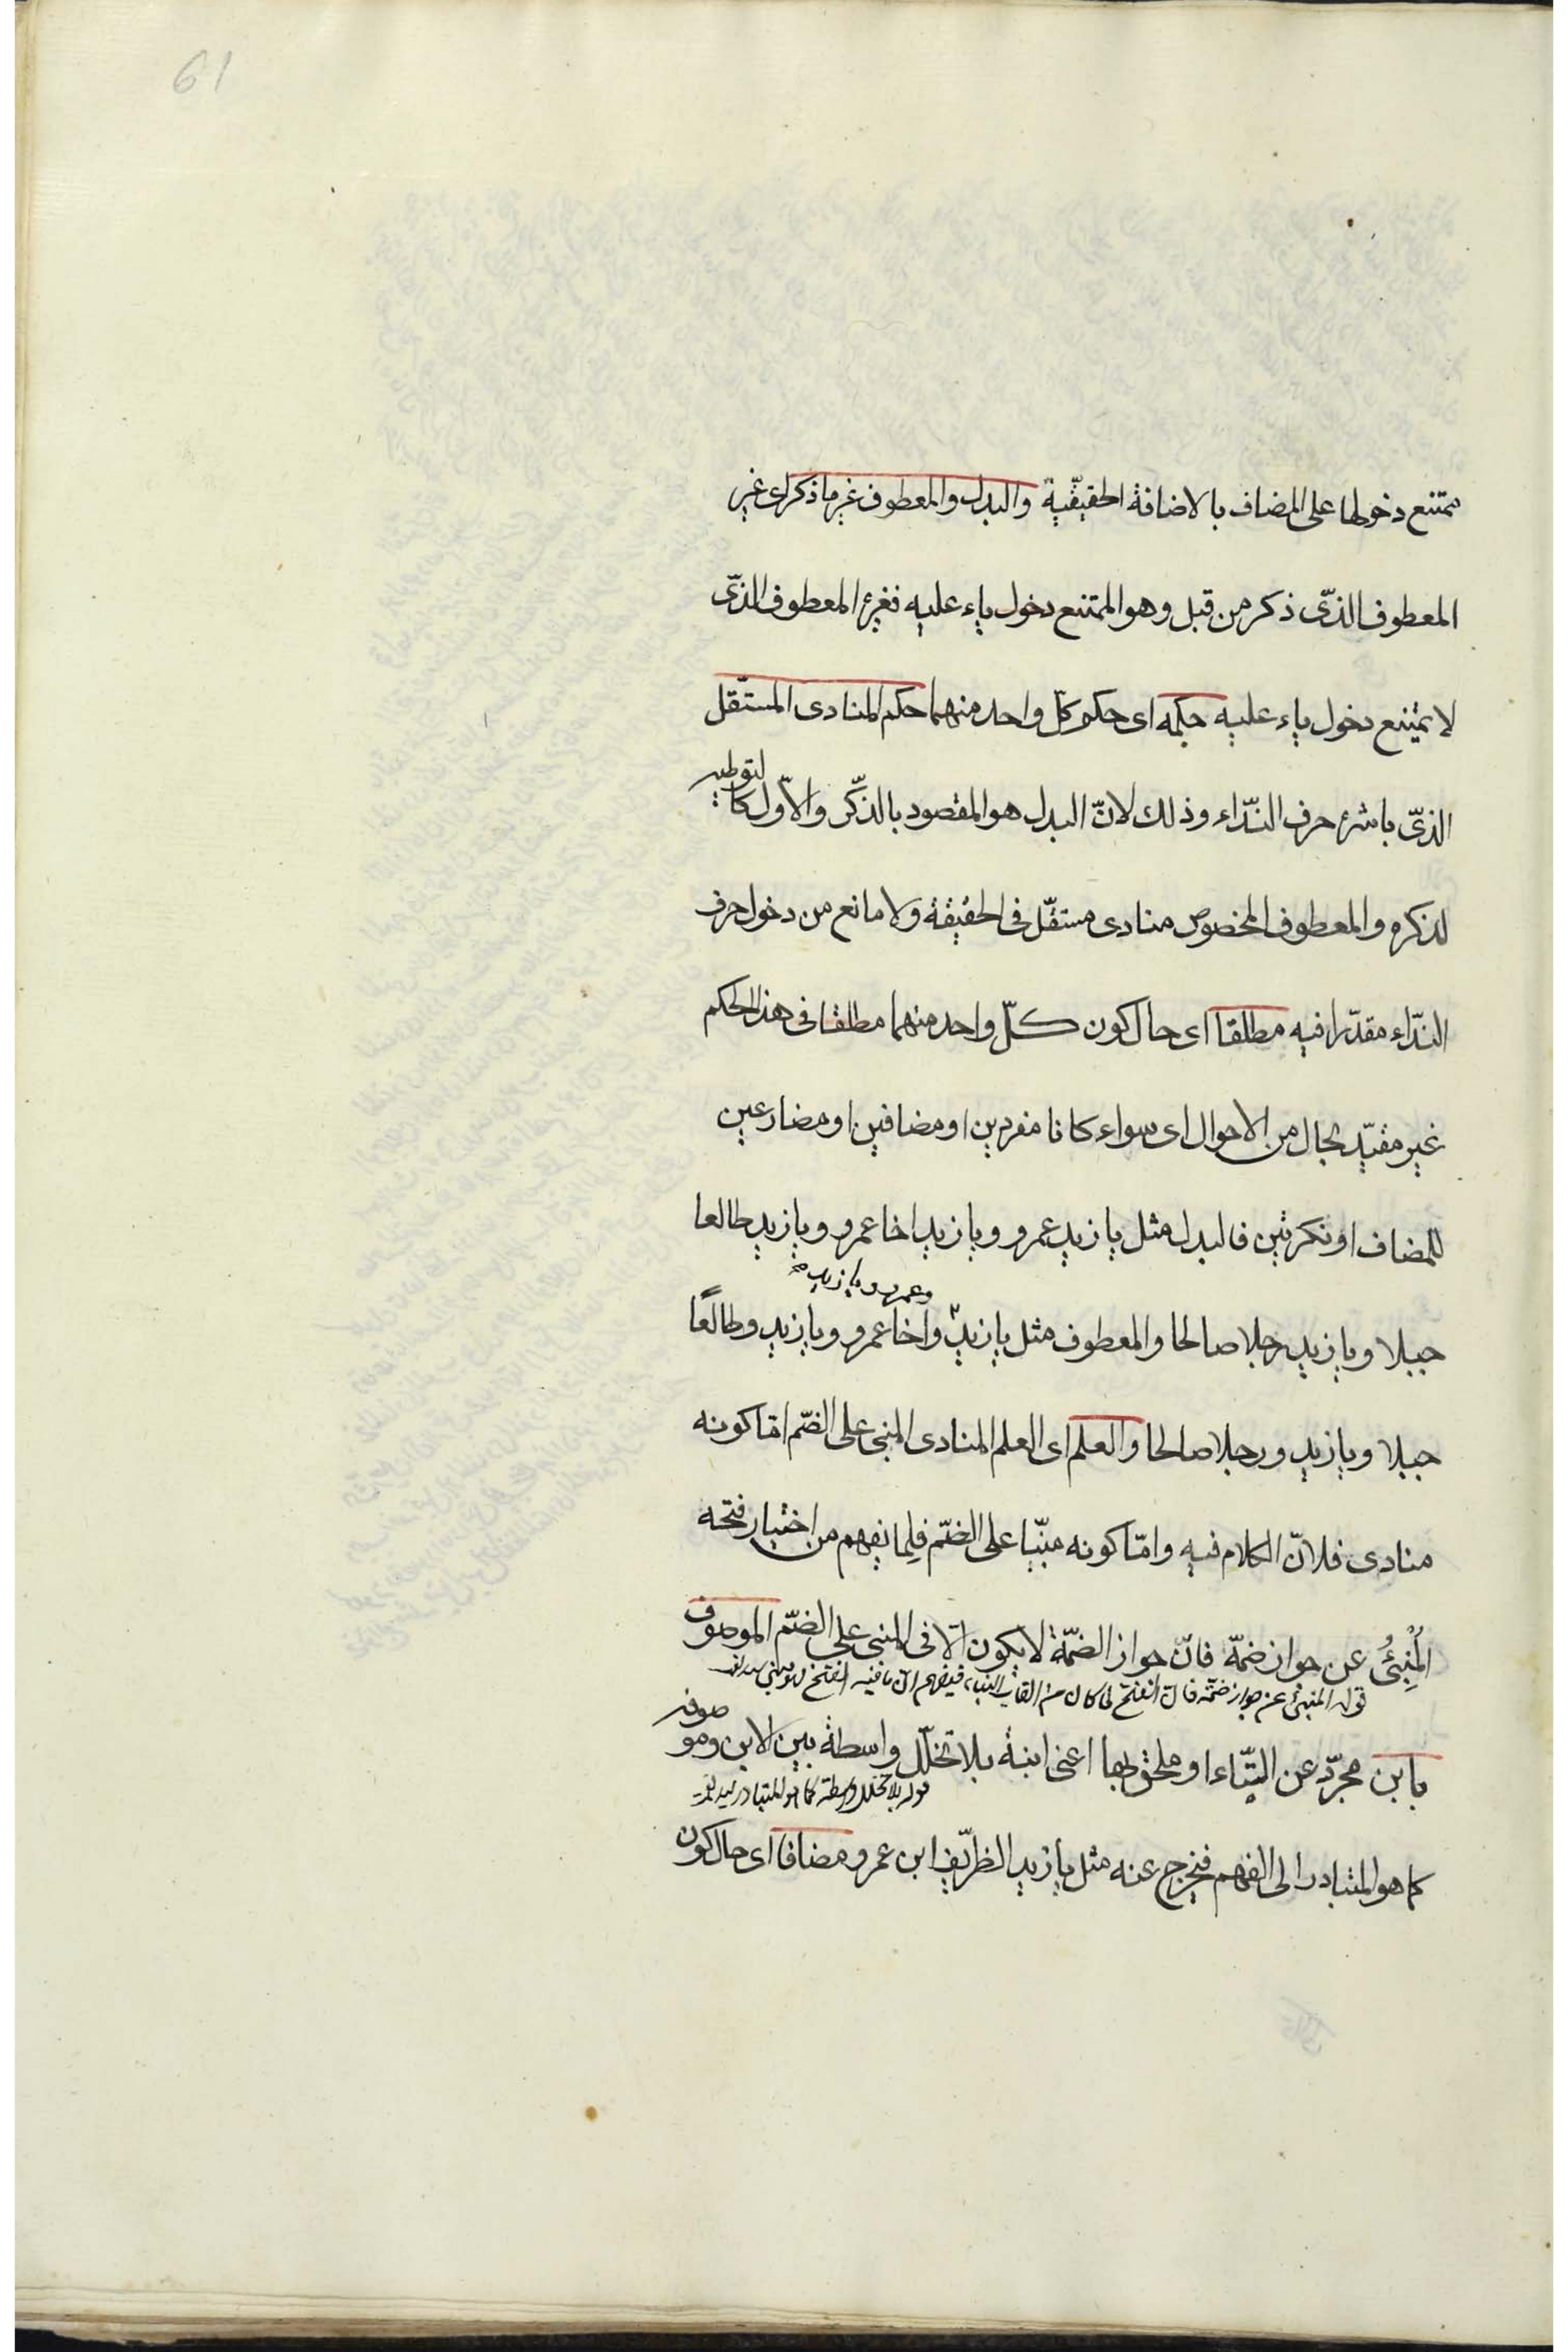 61
ممتنع دخولها على المضاف بالاضافة الحقيقّية والبدل والمعطوف غير ما ذكر اى غير
المعطوف الذّى ذكر من قبل وهو الممتنع دخول ياء عليه فغيره المعطوف الذّى
لا يمتنع دخول ياء عليه حكمه اى حكم كلّ واحد منهما حكم المنادى المستّقل
الذّى باشره حرف النّداء وذلك لانّ البدل هو المقصود بالذّكر والاوّل كالتوطيه
لذكره والمعطوف المخصوص منادى مستقّل فى الحقيقة ولا مانع من دخول حرف
النّداء مقدّرا فيه مطلقا اى حال كون كلّ واحد منهما مطلقا فى هذا الحكم
غير مقيّد بحال من الاحوال اى سواء كانا مفردين او مضافين او مضارعين
للمضاف او نكرتين فالبدل مثل يا زيد عمرو ويا زيد اخا عمرو ويا زيد طالعا
وعمرو ويا زيد صح
جبلا ويا زيد رجلا صالحا والمعطوف مثل يا زيد واخا عمرو ويا زيد وطالعًا
جبلا ويا زيد ورجلا صالحا والعلم اى العلم المنادى المبنى على الضّم امّا كونه
منادى فلانّ الكلام فيه وامّا كونه مبنّيا على الضّم فلِما يفهم من اختيار فتحه
المُنْبِئُ عن جواز ضمّه فانّ جواز الضمّة لا يكون الّا فى المبنى على الضّم الموصوف
قوله المنبئ عن جواز ضمّه فان الفتح لما كان من القاب البناء فيفهم ان ما فيه الفتح
بابن مجرّد عن التّاء او ملحق بها اعنى ابنة بلا تخلّل واسطة بين الابن وموصوفه
قوله بلا تخلل واسطة كما هو المتبادر
كما هو المتبادر الى الفهم فيخرج عنه مثل يا زيد الظرّيف ابن عمرو مضافا اى حال كون